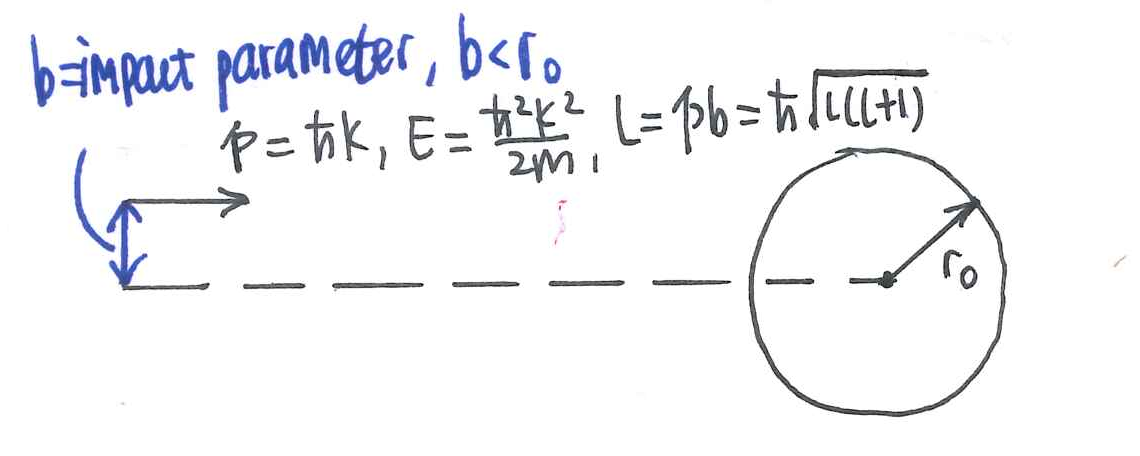 b=impact parameter, b<r₀
p=ħk, E=ħ²k²/2m, L=pb=ħ√l(l+1)
r₀